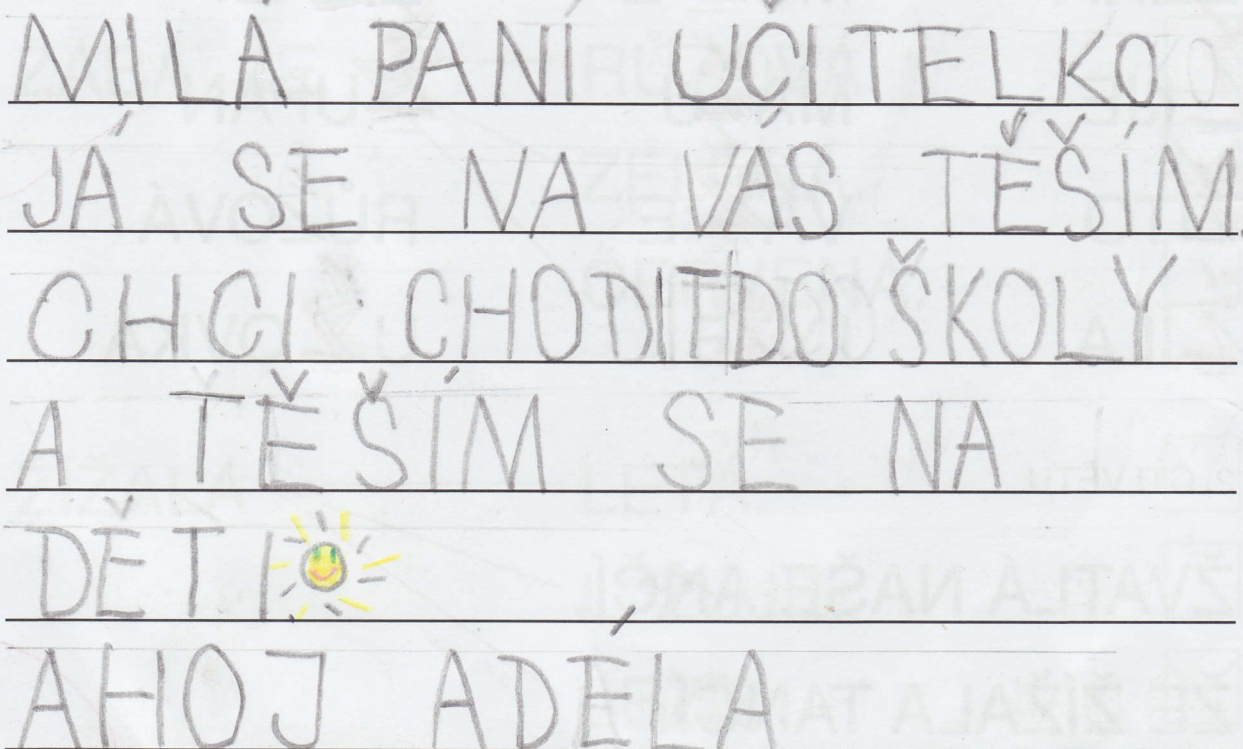 MILÁ PANÍ UČITELKO
JÁ SE NA VÁS TĚŠÍM.
CHCI CHODIT DO ŠKOLY
A TĚŠÍM SE NA
DĚTI
AHOJ ADÉLA